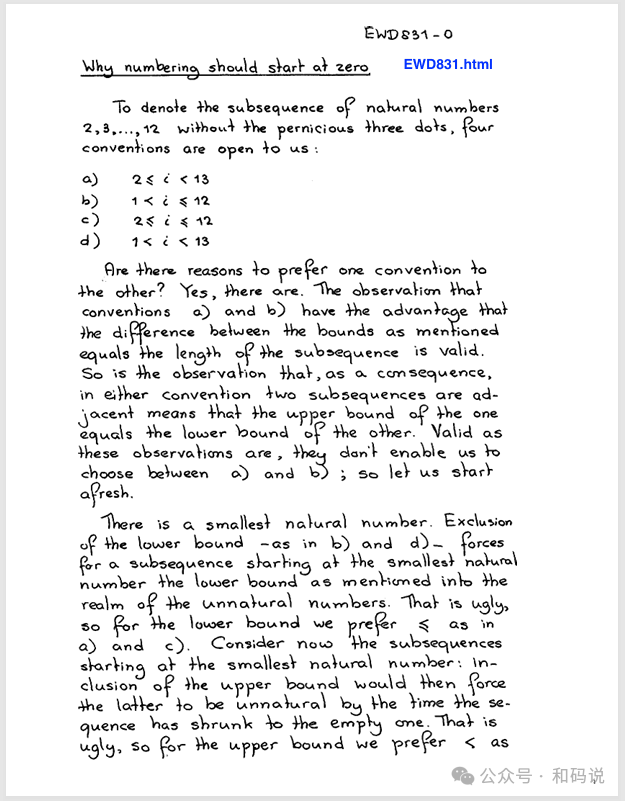 EWD831-0
Why numbering should start at zero EWD831.html
To denote the subsequence of natural numbers
2,3,...,12 without the pernicious three dots, four
conventions are open to us:
a) 2 ≤ i < 13
b) 1 < i ≤ 12
c) 2 ≤ i ≤ 12
d) 1 < i < 13
Are there reasons to prefer one convention to
the other? Yes, there are. The observation that
conventions a) and b) have the advantage that
the difference between the bounds as mentioned
equals the length of the subsequence is valid.
So is the observation that, as a consequence,
in either convention two subsequences are ad-
jacent means that the upper bound of the one
equals the lower bound of the other. Valid as
these observations are, they don't enable us to
choose between a) and b); so let us start
afresh.
There is a smallest natural number. Exclusion
of the lower bound -as in b) and d)- forces
for a subsequence starting at the smallest natural
number the lower bound as mentioned into the
realm of the unnatural numbers. That is ugly,
so for the lower bound we prefer ≤ as in
a) and c). Consider now the subsequences
starting at the smallest natural number: in-
clusion of the upper bound would then force
the latter to be unnatural by the time the se-
quence has shrunk to the empty one. That is
ugly, so for the upper bound we prefer < as
公众号 · 和码说